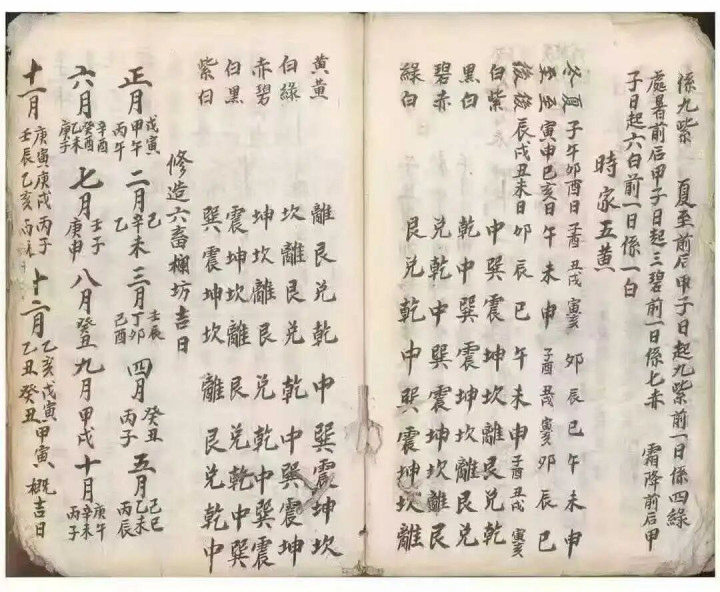 係九紫 夏至前后甲子日起九紫前一日係四綠
處暑前后甲子日起三碧前一日係七赤 霜降前后甲
子日起六白前一日係一白
時家五黄
冬夏 子午卯酉日 子酉 丑戌 寅亥 卯辰巳午未申
至至 寅申巳亥日午未申 子酉 丑戌 寅亥 卯辰巳
後後 辰戌丑未日卯辰巳午未申 子酉 丑戌 寅亥
白紫 中巽震坤坎離艮兑乾
黑白 乾中巽震坤坎離艮兑
碧赤 兑乾中巽震坤坎離艮
綠白 艮兑乾中巽震坤坎離
黄黄 離艮兑乾中巽震坤坎
白綠 坎離艮兑乾中巽震坤
赤碧 坤坎離艮兑乾中巽震
白黑 震坤坎離艮兑乾中巽
紫白 巽震坤坎離艮兑乾中
修造六畜欄坊吉日
正月 戊寅 甲午 丙午 二月 己 辛未 乙 三月 壬辰 丁卯 己酉 四月 癸丑 丙子 五月 己巳 乙未 丙辰
六月 辛酉 癸酉 乙未 庚子 七月 壬子 庚申 八月 癸丑 九月 甲戌 十月 庚午 辛未 丙子
十一月 庚寅 庚戌 丙子 壬辰 乙亥 十二月 乙亥 戊寅 乙丑 癸丑 甲寅 概吉日